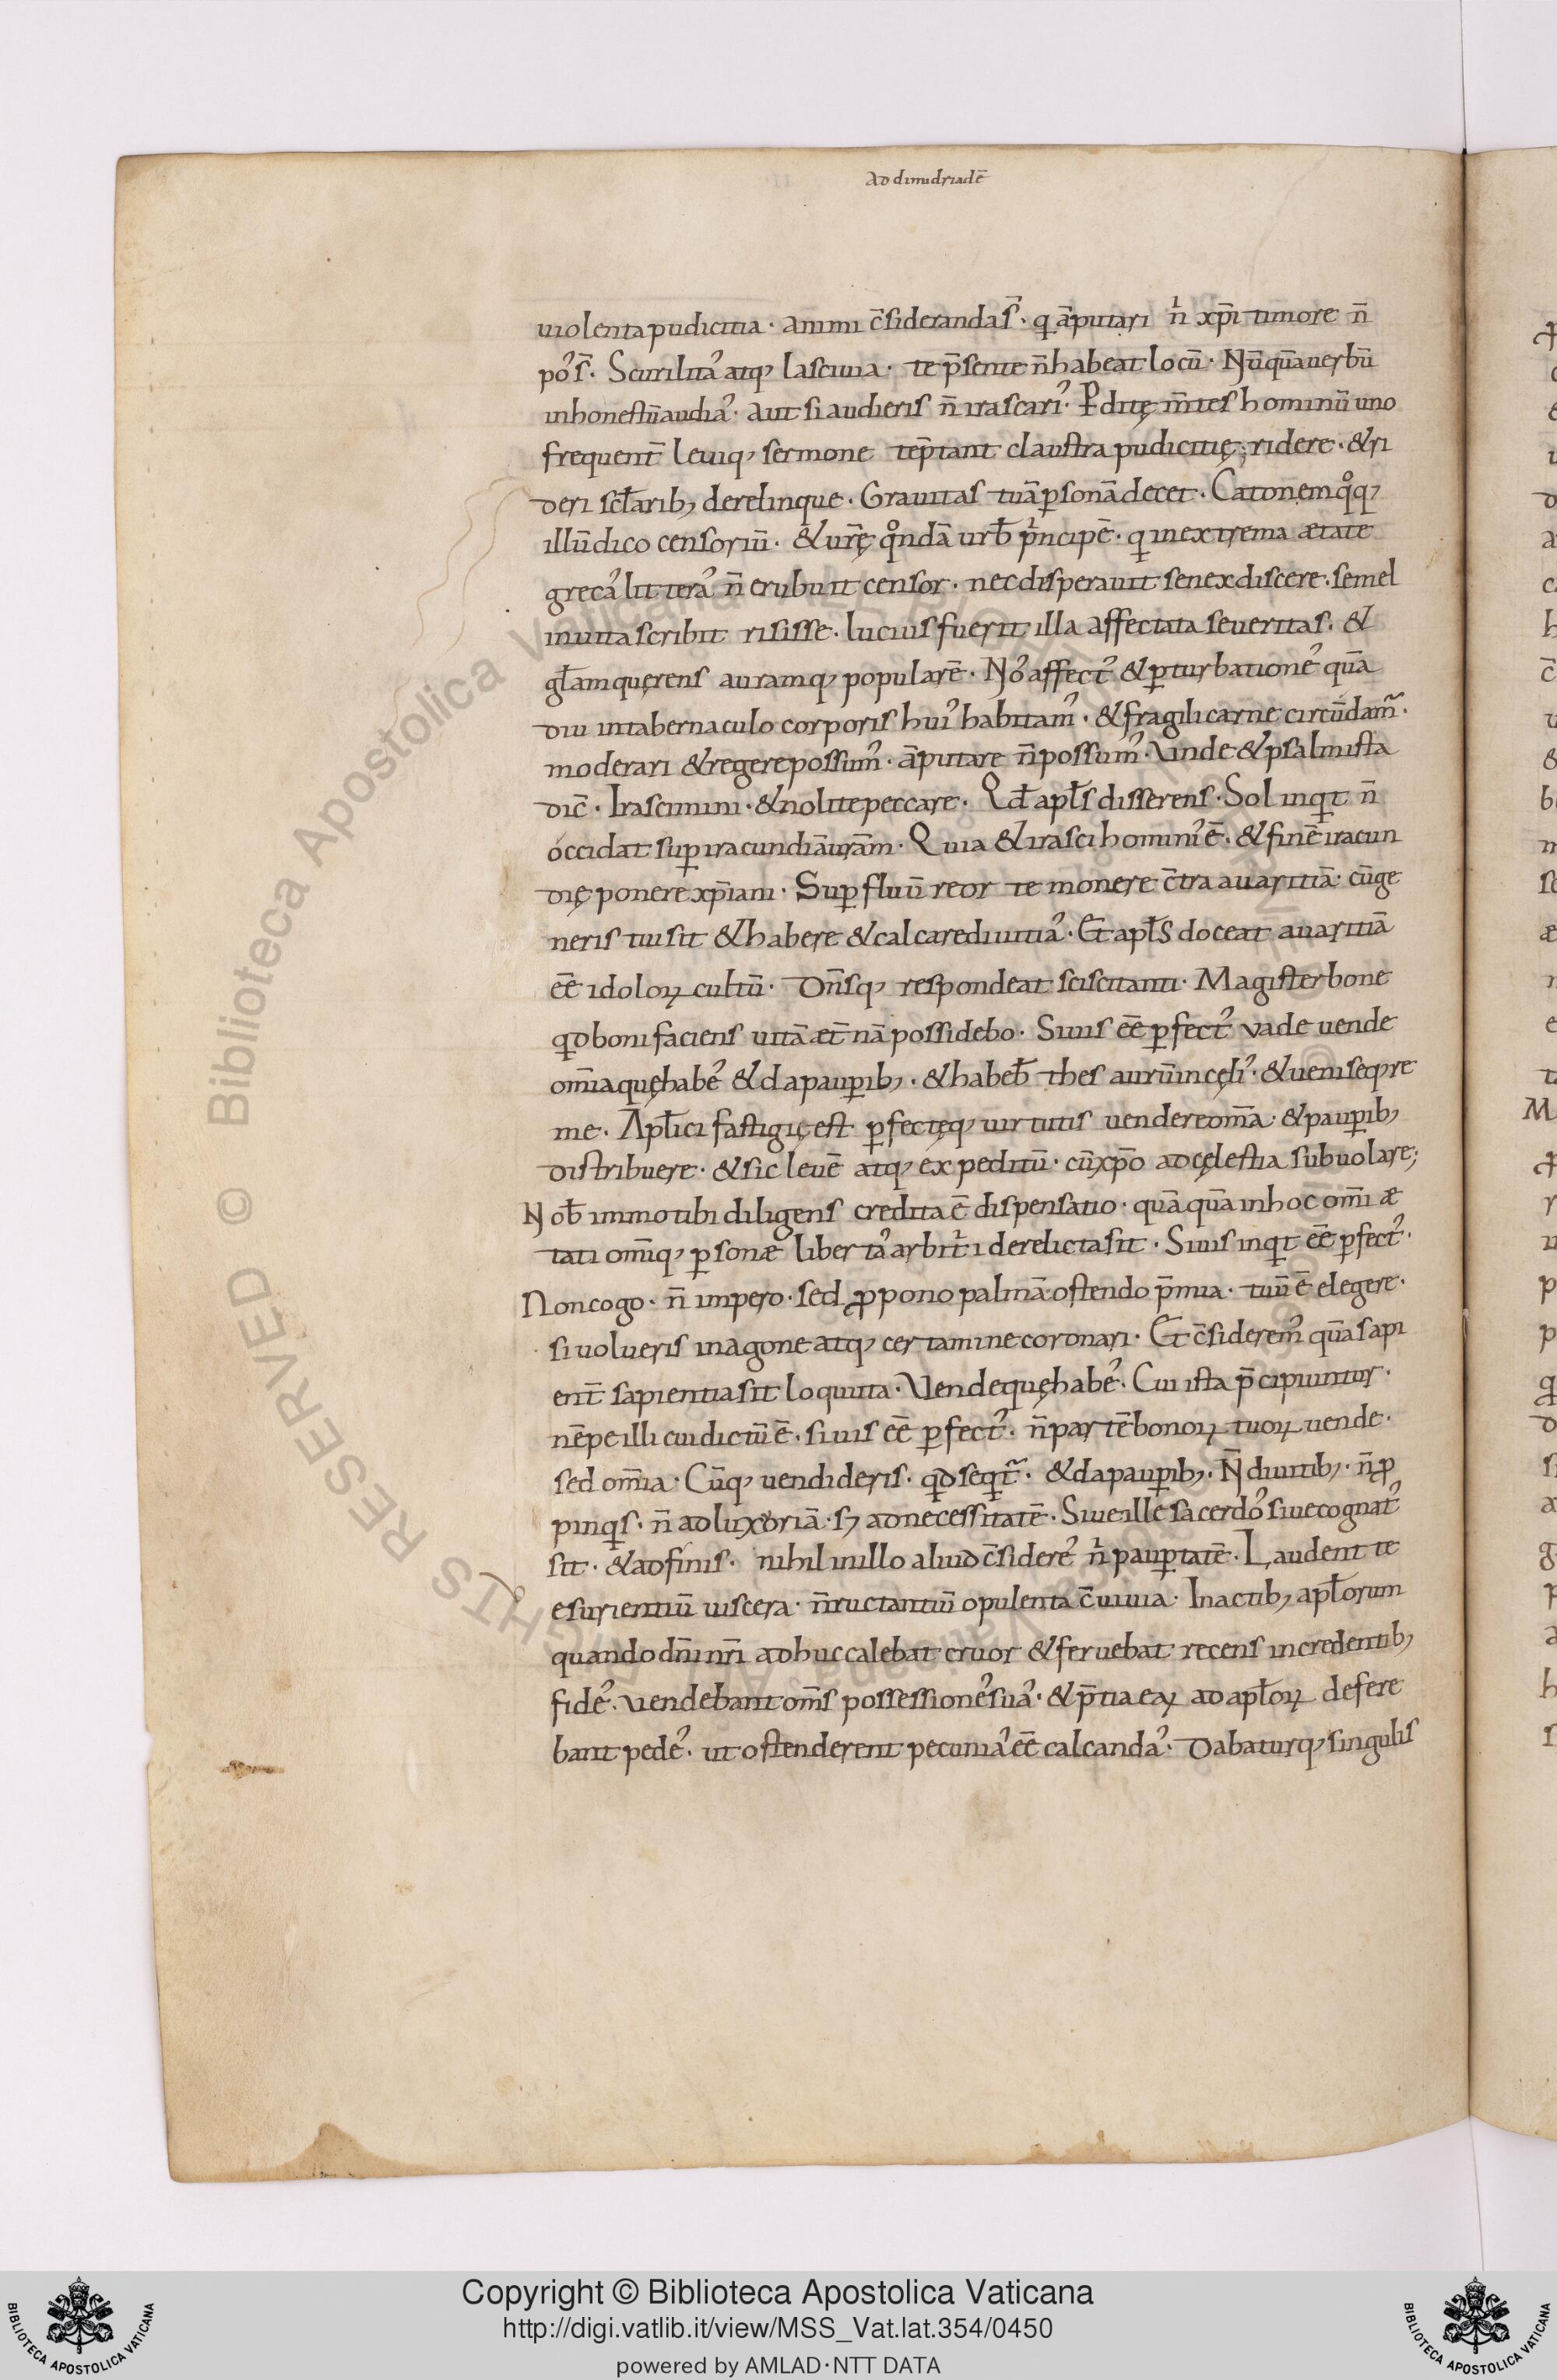 ad dimidriadē
uiolenta pudicitia · animi c̄siderandaſ̄ · q āputari n̓ xp̄i timore n̄
po᾿ſ̄ · Scurilita᾿ atq; laſciuia · te p̄ſente n̄ habeat locū · Nūquā uerbū
inhoneſtū audia᾿ · aut ſi audieriſ n̄ iraſcari᾿ · P̱ditę m̄teſ hominū uno
frequent̄ leuiq; ſermone tēptant clauſtra pudicitię; ridere · & ri
deri ſcłarib; derelinque · Grauitaſ tuā ꝑſonā decet · Catonem qͦq;
illū dico cenſoriū · & ur̄ę qͦndā urƀ pͥncipē · q in extrema ætate
greca᾿ littera᾿ n̄ erubuit cenſor · nec diſperauit ſenex diſcere · ſemel
inuita ſcribit riſiſſe · luciuſ fuerit illa affectata ſeueritaſ · &
gƚam querenſ auramq; popularē · No᾿ affect᾿ & ꝑturbatione᾿ quā
diu in tabernaculo corporiſ hui᾿ habitam᾿ · & fragili carne circūdam̃ ·
moderari & regere poſſum᾿ · āputare n̄ poſſum᾿ · Vnde & pſalmiſta
dic̄ · Iraſcimini · & nolite peccare · Qđ apƚſ diſſerenſ · Sol inqt n̄
occidat ſuꝑ iracundiā urām · Quia & iraſci homini᾿ ē · & finē iracun
dię ponere xp̄iani · Suꝑfluū reor te monere c̄tra auaritiā · cū ge
neriſ tui ſit & habere & calcare diuitia᾿ · Et apƚS doceat auaritiā
eē idoloꝝ cultū · Dn̄ſq; reſpondeat ſciſcitanti · Magiſter bone
qd boni facienſ uitā æt̄nā poſſidebo · Si uiſ eē ꝑfect᾿ vade uende
om̄ia quę habe᾿ & da pauꝑib; · & habeƀ theſaurū in cęli᾿ · & ueni ſeqre
me · Apƚici faſtigię eſt ꝑfectęq; uirtutiſ uendere om̄a · & pauꝑib;
diſtribuere · & ſic leuē atq; expeditū · cū xp̄o ad cęleſtia ſubuolare;
Noƀ immo tibi diligenſ credita ē diſpenſatio · quā quā in hoc om̄i æ
tati om̄iq; ꝑſonæ liberta᾿ arbitͥi derelicta ſit · Si uiſ inqt eē ꝑfect᾿ ·
Non cogo · n̄ impero · ſed ꝓpono palmā · oſtendo p̄mia · tuū ē elegere ·
ſi uolueriſ in agone atq; certamine coronari · Et c̄ſiderem᾿ quā ſapi
ent̄ ſapientia ſit loquuta · Vende quę habe᾿ · Cui iſta p̄cipiuntur ·
nēpe illi cui dictū ē · ſi uiſ eē ꝑfect᾿ · n̄ partē bonoꝝ tuoꝝ uende ·
ſed om̄ia · Cūq; uendideriſ · qd ſeqt̃ · & da pauꝑib; · N̄ diuitib; · n̄ ꝓ
pinqſ · n̄ ad luxoriā · ſꝫ ad neceſſitatē · Siue ille ſacerdo᾿ ſiue cognat᾿
ſit · & adfiniſ · nihil in illo aliud c̄ſidere᾿ n̓ pauꝑtatē · Laudent te
eſurientiū uiſcera · n̄ ructantiū opulenta c̄uiuia · In actib; apƚorum
quando dn̄i nr̄i adhuc calebat cruor & feruebat recenſ in credentib;
fide᾿ · Vendebant om̄ſ poſſeſſione᾿ ſua᾿ · & p̄tia eaꝝ ad apƚoꝝ defere
bant pede᾿ · ut oſtenderent pecunia᾿ eē calcanda᾿ · Dabaturq; ſinguliſ
Copyright © Biblioteca Apostolica Vaticana
http://digi.vatlib.it/view/MSS_Vat.lat.354/0450
powered by AMLAD·NTT DATA